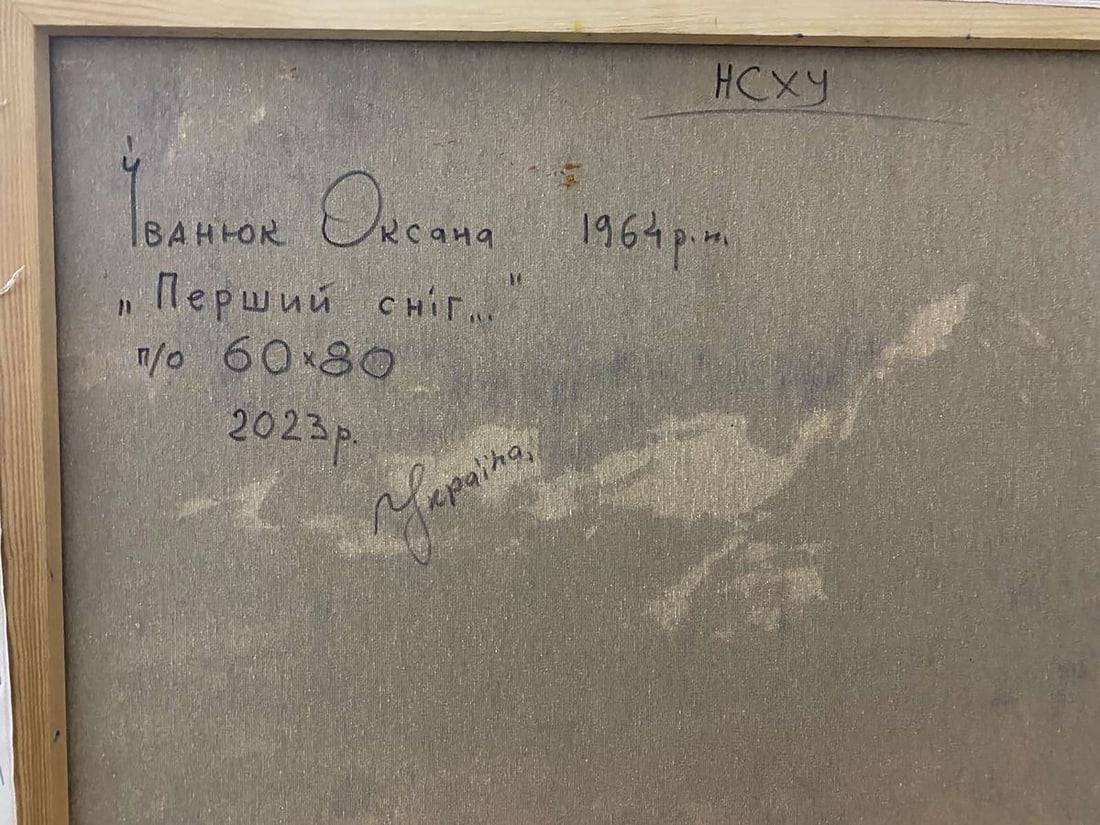 НСХУ
Іванюк Оксана 1964 р.н.
„Перший сніг..."
п/о 60×80
2023р.
Україна,